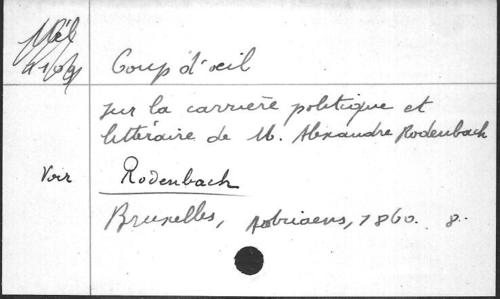 Mél
Coup d'œil
sur la carrière politique et
littéraire de M. Alexandre Rodenbach
Voir Rodenbach
Bruxelles, Adriaens, 1860. 8.